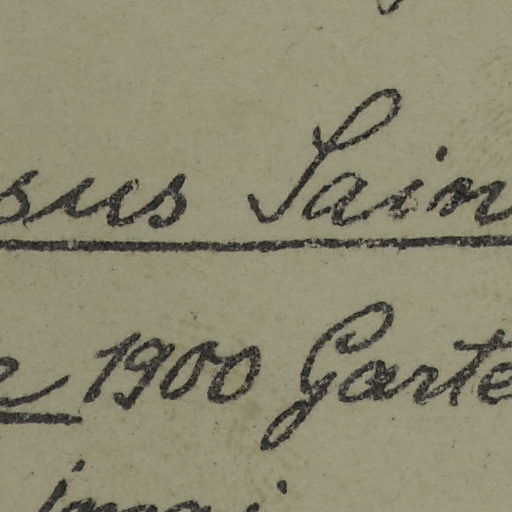 sus Sain
e 1900 Garte